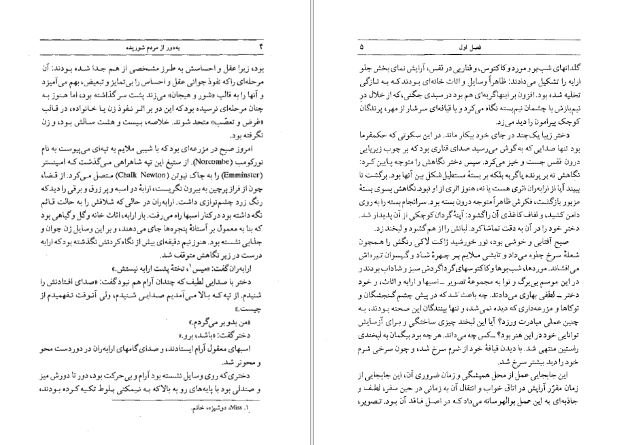 ۴ به‌دور از مردم شوریده
بود، زیرا عقل و احساسش به طرز مشخصی از هم جدا شده بودند: آن
مرحله‌ای را که نفوذ جوانی عقل و احساس را بی‌تمایز و تبعیض، بهم می‌آمیزد
و آنها را به قالب «شور و هیجان» می‌زند پشت سر گذاشته بود؛ اما هنوز به
چنان مرحله‌ای نرسیده بود که این دو بر اثر نفوذ زن یا خانواده، در قالب
«غرض و تعصّب» متحد شوند. خلاصه، بیست و هشت سالش بود، و زن
نگرفته بود.
امروز صبح در مزرعه‌ای بود که با شیبی ملایم به تپه‌ای می‌پیوست به نام
نورکومب (Norcombe). از ستیغ این تپه شاهراهی می‌گذشت که امینستر
(Emminster) را به چاک نیوتن (Chalk Newton) متصل می‌کرد. از قضاء
چون از فراز پرچین به بیرون نگریست، ارابه دو اسبه و پر زرق و برقی را دید که
رنگ زرد چشم‌نوازی داشت. ارابه‌ران در حالی که شلاقش را به حالت قائم
نگه داشته بود در کنار اسبها راه می‌رفت. بار ارابه، اثاث خانه و گل و گیاهی بود
که بنا به معمول بر آستانهٔ پنجره‌ها جای می‌دهند، و بر این وسایل زن جوان و
جذابی نشسته بود. هنوز نیم دقیقه‌ای بیش از نگاه کردنش نگذشته بود که ارابه
درست در زیر نگاهش متوقف شد.
ارابه‌ران گفت: «میس۱، تختهٔ پشت ارابه نیستش.»
دختر با صدایی لطیف که چندان آرام هم نبود گفت: «صدای افتادنش را
شنیدم. از تپه که بالا می‌آمدیم صدایی شنیدم، ولی آنوقت نفهمیدم از
چیست.»
«من بدو بر می‌گردم.»
دختر گفت: «باشد، برو.»
اسبهای معقول آرام ایستادند، و صدای گامهای ارابه‌ران در دوردست محو
و محوتر شد.
دختری که روی وسایل نشسته بود آرام و بی‌حرکت بود، دور تا دورش میز
و صندلی بود با پایه‌های رو به بالا که به نیمکتی بلوط تکیه کرده بودند،
۱. Miss، دوشیزه، خانم.
فصل اول ۵
گلدانهای شب‌بو و مورد و کاکتوس، و قناریی در قفس، آرایش نمای بخش جلو
ارابه را تشکیل می‌دادند: ظاهراً وسایل و اثاث خانه‌ای بودند که به تازگی
تخلیه شده بود. افزون بر اینها گربه‌ای هم بود در سبدی جگنی، که از خلال در
نیم‌بازش با چشمان نیم‌بسته نگاه می‌کرد و با قیافه‌ای سرشار از مهر، پرندگان
کوچک پیرامون را دید می‌زد.
دختر زیبا یک‌چند در جای خود بیکار ماند. در این سکونی که حکمفرما
بود تنها صدایی که به گوش می‌رسید صدای قناری بود که بر چوب زیرپایی
درون قفس جست و خیز می‌کرد. سپس دختر نگاهش را متوجه پایین کرد:
نگاهش نه بر پرنده یا گربه بلکه بر بستهٔ مستطیل شکل بین آنها بود. برگشت تا
ببیند آیا از ارابه‌ران اثری هست یا نه، هنوز اثری از او نبود. نگاهش بسوی بستهٔ
مزبور بازگشت، فکرش ظاهراً متوجه درون بسته بود. سرانجام بسته را به روی
دامن کشید، و لفاف کاغذی آن را گشود: آینهٔ گردان کوچکی از آن پدیدار شد.
دختر خود را در آن به دقت تماشا کرد. لبانش را از هم گشود و لبخند زد.
صبح آفتابی و خوشی بود، نور خورشید ژاکت لاکی رنگش را همچون
شعلهٔ سرخ جلوه می‌داد و تابشی ملایم بر چهرهٔ شاد و گیسوان تیره‌اش
می‌افشاند. موردها، شب‌بوها و کاکتوسهای گرداگردش سبز و شاداب بودند و
در این موسم بی‌برگ و نوا به مجموعهٔ تصویر - اسبها و ارابه و اثاث، و خود
دختر - لطفی بهاری می‌دادند. چه باعث شد که در پیش چشم گنجشگان و
توکاها و مزرعه‌داری که دیده نمی‌شد، و تنها بینندگان این صحنه بودند، به
چنین عملی مبادرت ورزد؟ آیا این لبخند چیزی ساختگی و برای آزمایش
توانایی خود در این هنر بود؟ - کس چه می‌داند. هر چه بود بیگمان به لبخندی
راستین منتهی شد. با دیدن قیافهٔ خود از شرم سرخ شد، و چون سرخی شرم
خود را دید بیشتر سرخ شد.
این جابجایی عمل از محل همیشگی و زمان ضروری آن، این جابجایی از
زمان مقرر آرایش در اتاق خواب و انتقال آن به زمانی در حین سفر، لطف و
جاذبه‌ای به این عمل بوالهوسانه می‌داد که در اصل فاقد آن بود. تصویر،